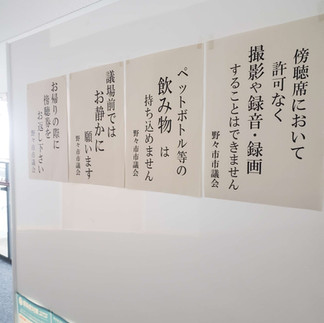 傍聴席において
許可なく
撮影や録音・録画
することはできません
野々市市議会
ペットボトル等の
飲み物は
持ち込めません
野々市市議会
議場前では
お静かに
願います
野々市市議会
お帰りの際に
傍聴券を
お返し下さい
野々市市議会